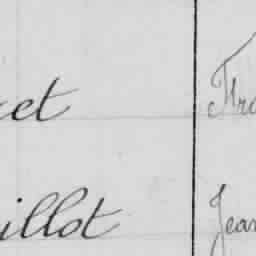 et Fra
illot Jean